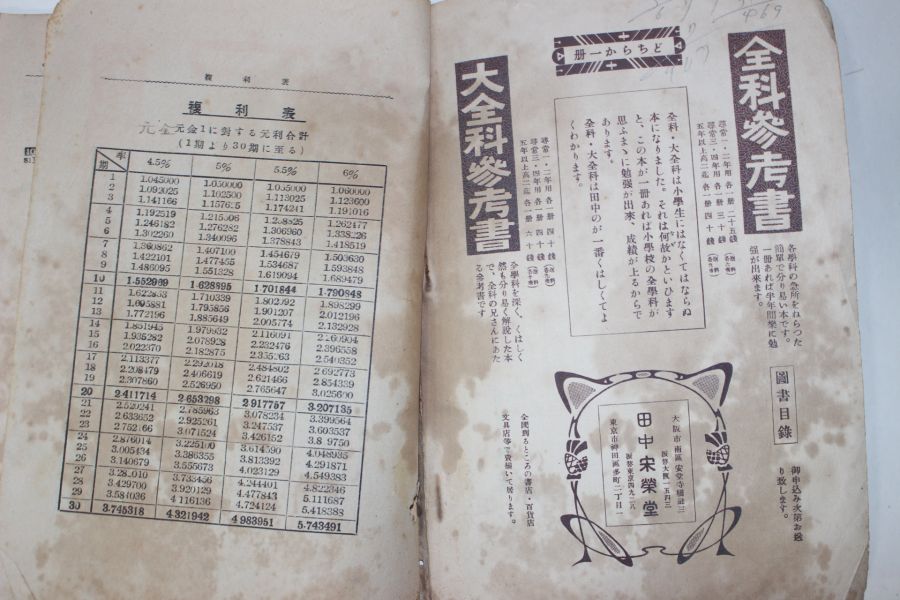 複利表
複利表
元金元金1に對する元利合計
(1期より30期に至る)
年 期 4.5% 5% 5.5% 6%
1 1.045000 1.050000 1.055000 1.060000
2 1.092025 1.102500 1.113025 1.123600
3 1.141166 1.157625 1.174241 1.191016
4 1.192519 1.215506 1.238825 1.262477
5 1.246182 1.276282 1.306960 1.338226
6 1.302260 1.340096 1.378843 1.418519
7 1.360862 1.407100 1.454679 1.503630
8 1.422101 1.477455 1.534687 1.593848
9 1.486095 1.551328 1.619094 1.689479
10 1.552969 1.628895 1.701844 1.790848
11 1.622853 1.710339 1.802092 1.898299
12 1.695881 1.795856 1.901207 2.012196
13 1.772196 1.885649 2.005774 2.132928
14 1.851945 1.979932 2.116091 2.260904
15 1.935282 2.078928 2.232476 2.396558
16 2.022370 2.182875 2.355263 2.540352
17 2.113377 2.292018 2.484802 2.692773
18 2.208479 2.406619 2.621466 2.854339
19 2.307860 2.526950 2.765647 3.025600
20 2.411714 2.653298 2.917757 3.207135
21 2.520241 2.785963 3.078234 3.399564
22 2.633652 2.925261 3.247537 3.603537
23 2.752166 3.071524 3.426152 3.8 9750
24 2.876014 3.225100 3.614590 4.048935
25 3.005434 3.386355 3.813392 4.291871
26 3.140679 3.555673 4.023129 4.549383
27 3.282010 3.733456 4.244401 4.822346
28 3.429700 3.920129 4.477843 5.111687
29 3.584036 4.116136 4.724124 5.418388
30 3.745318 4.321942 4.983951 5.743491
全科參考書
尋常一・二年用各一册二十五錢
尋常三・四年用各一册三十錢
五年以上高二迄各一册四十錢
各學科の急所をねらつた
簡單で分り易い本です。
一册あれば半年間樂に勉
强が出來ます。
どちらか一册
全科・大全科は小學生にはなくてはならぬ
本になりました。それは何故かといひます
と、この本が一册あれば小學校の全學科が
思ふまゝに勉强が出來、成績が上るからで
あります。
全科・大全科は田中のが一番くはしくてよ
くわかります。
大全科參考書
尋常一・二年用各一册四十錢
尋常三・四年用各一册五十錢
五年以上高二迄各一册六十錢
全學科を深く、くはしく
然も分り易く解說した本
で、全科の兄さんにあた
る參考書です
圖書目錄
御申込み次第お送
り致します。
大阪市南區安堂寺橋通三
振替大阪一五四三
田中宋榮堂
東京市神田區多町二丁目一
振替東京四九二八
全國到るところの書店・百貨店
文具店等で賣捌いて居ります。